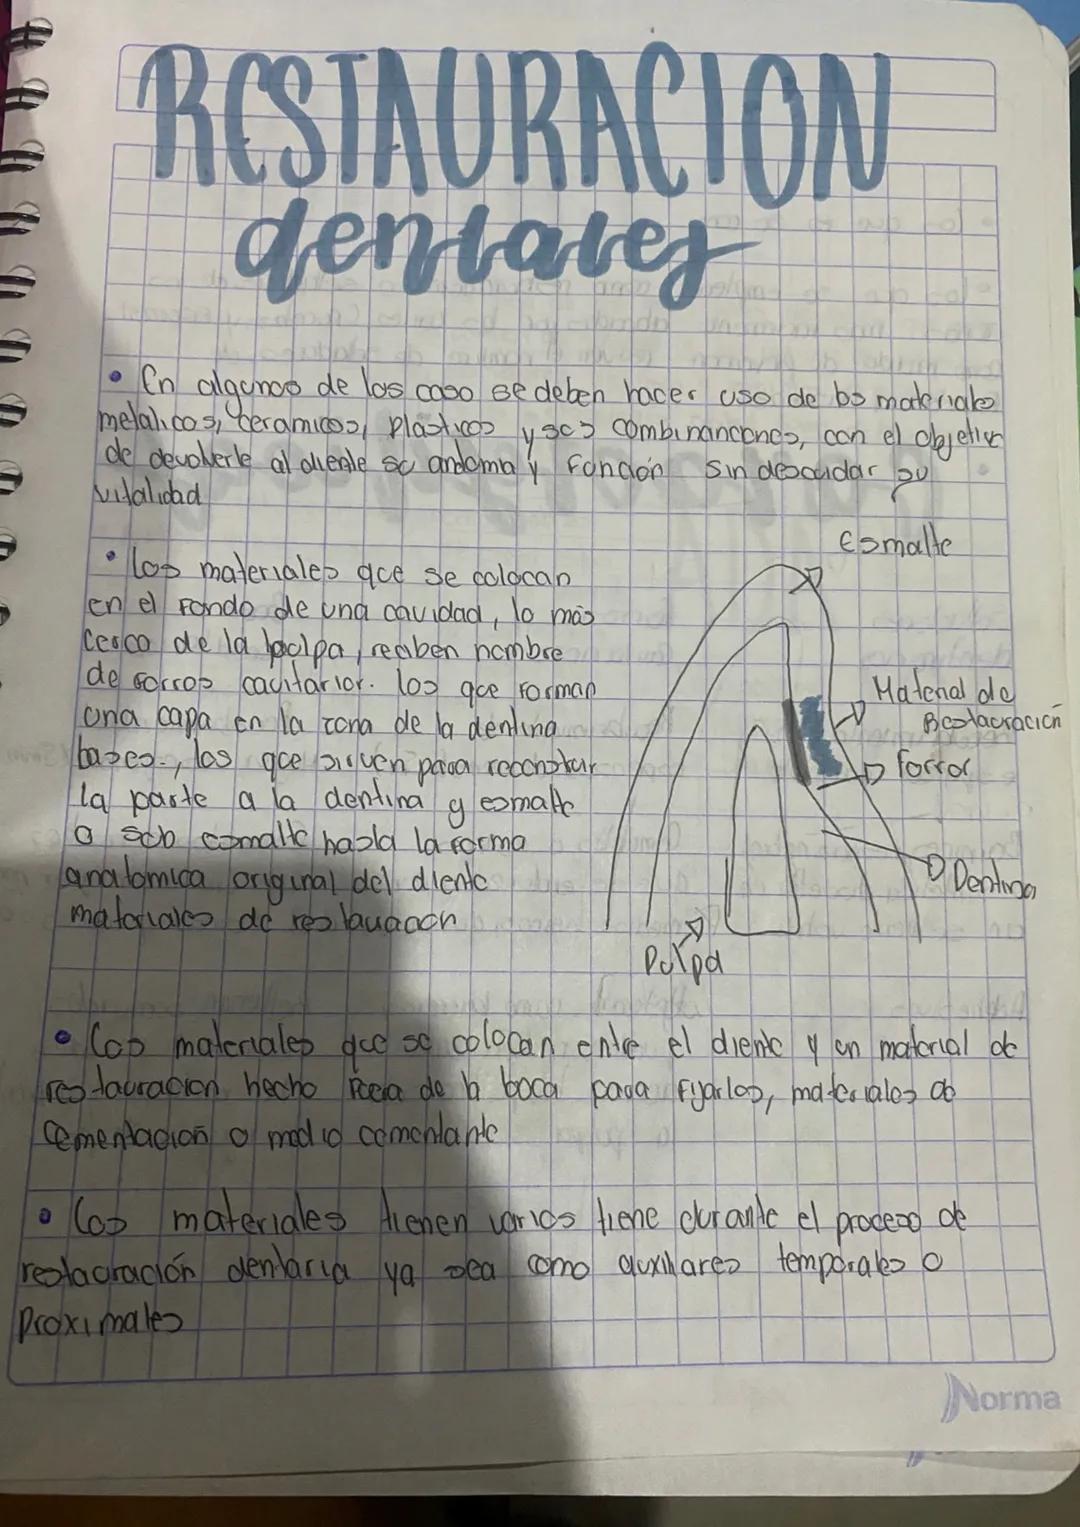 RESTAURACION
dentales
• En algunos de los caso se deben hacer uso de los materiales
metalicos, ceramicos, plásticos y sus combinanciones, con el objetivo
de devolverle al diente su andomia y función sin descuidar su
vitalidad
Esmalte
• Los materiales que se colocan
en el fondo de una cavidad, lo más
cerca de la pulpa, reciben nombre
de forros cavitarior. los que forman
una capa en la zona de la dentina
bases., las que sirven para reconstuir
la parte a la dentina y esmalte
o solo esmalte hasta la forma
anatomica original del diente
materiales de restauacion
Material de
Restauración
Forror
Dentina
Pulpa
• Los materiales que se colocan entre el diente y un material de
restauracion hecho fuera de la boca para fijarlos, materiales de
cementación o medio cementante
• Los materiales tienen varios tiene durante el proceso de
restauración dentaria ya sea como auxiliares temporales o
proximales
Norma